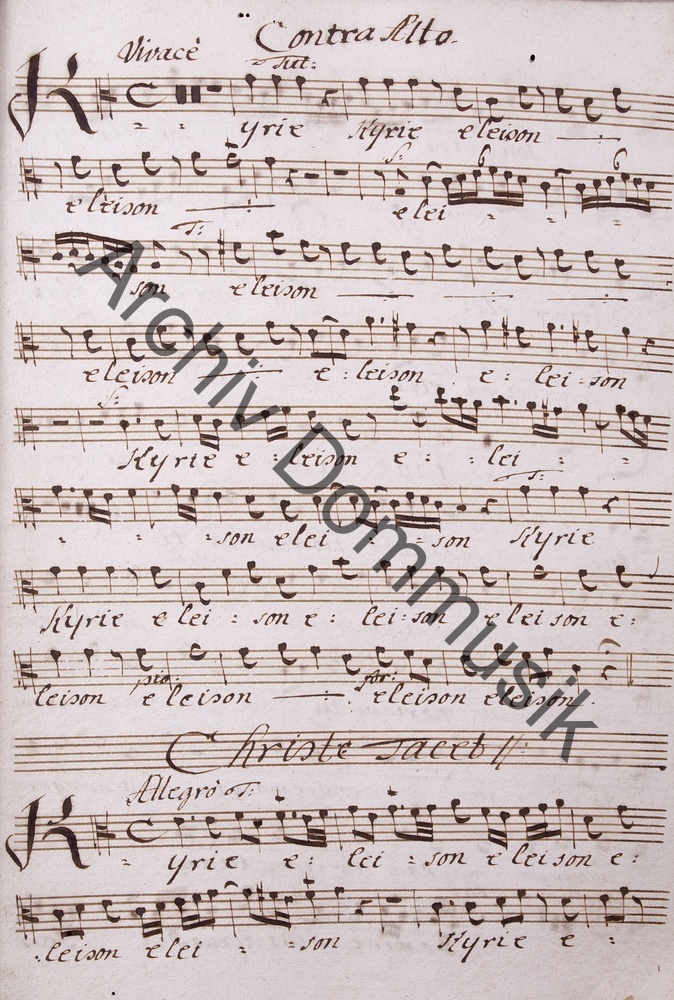 Contra Alto.
Vivacè
Tut:
Kyrie Kyrie eleison
S:
eleison elei
T:
son eleison
eleison e: leison e: lei-son
S:
Kyrie e: leison e: lei
T:
son elei son Kyrie
Kyrie elei son e: lei:son eleison e:
pio: for:
leison eleison eleison eleison.
Christe Tacet
Allegrò T:
Kyrie e: lei son eleison e:
leison elei son Kyrie e
Archiv Dommusik